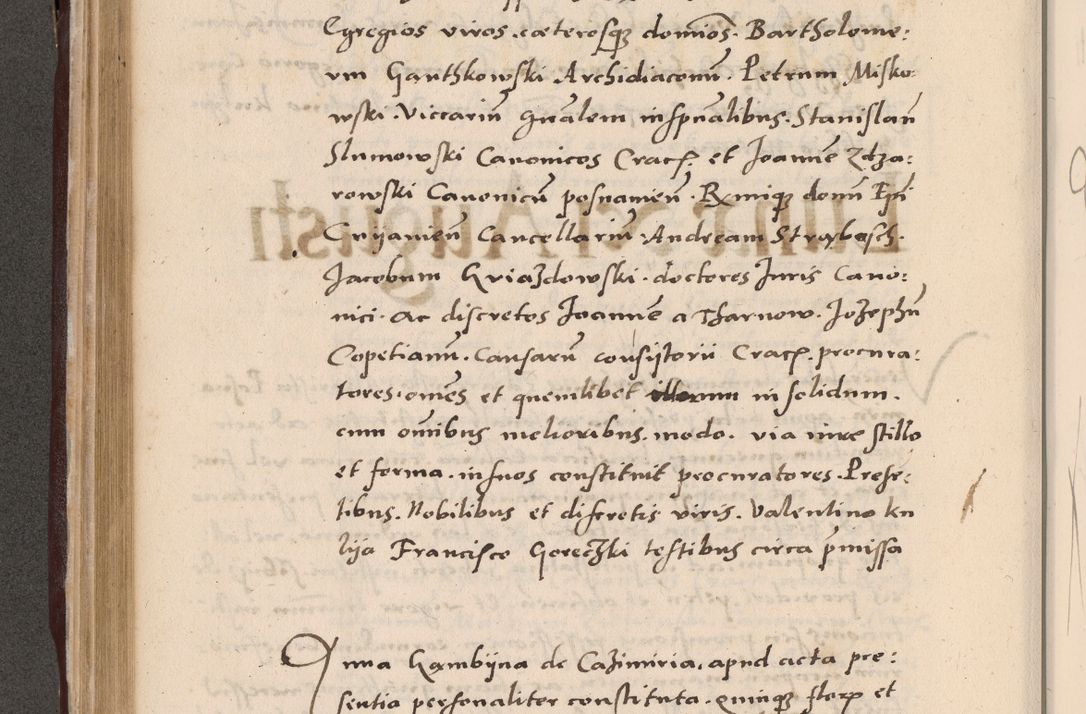 Egregios viros. cæterosq́ꝫ domiōs. Bartholome:
vm Ganthkowski Archidiaconū. Petrum Misko:
wski. Viccariū gn̄alem in spūalibus. Stanislaū
Slumowski Canonicos Cracꝭ. et Joannē Zdza:
rowski Canonicū posnanień. Rx̄miqꝫ domī Ep̄i
Cuijavień Cancellariū. Andream Strybosch.
Jacobum Gviazdowski. doctores Juris Cano:
nici. Ac discretos Joannē a Tharnow. Jozephū
Copetianū. Causarū consijtorii Cracꝭ. procura:
tores. om̄es et quemlibet illorum in solidum.
cum om̄ibus melioribus. modo. via iure stillo
et forma. in suos constituit procuratores. Prese:
tibus. Nobilibus et discretis viris. Valentino Ku
lija Francisco Goreczki testibus circa p̄missa
Anna Gambijna de Cazimiria. apud acta pre:
sentia personaliter constituta. quinqꝫ floꝝ et